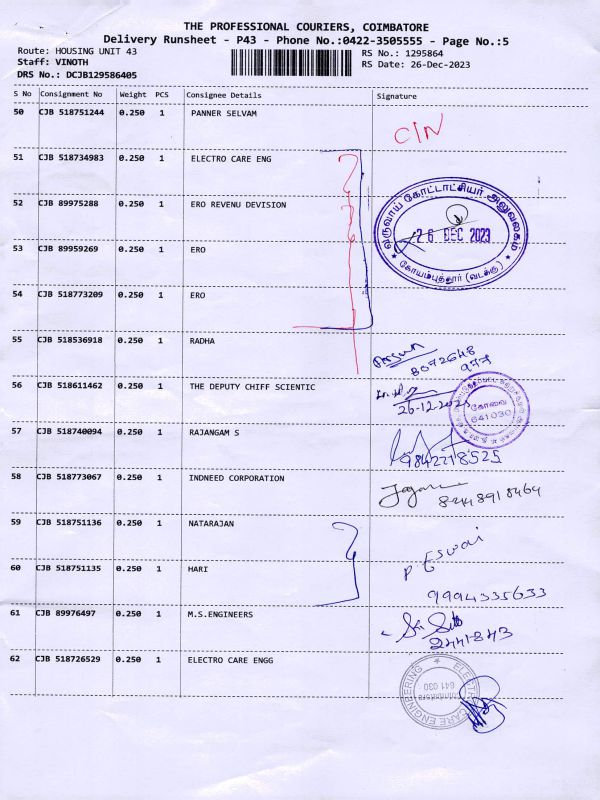 THE PROFESSIONAL COURIERS, COIMBATORE
Delivery Runsheet - P43 - Phone No.:0422-3505555 - Page No.:5
Route: HOUSING UNIT 43
RS No.: 1295864
Staff: VINOTH
RS Date: 26-Dec-2023
DRS No.: DCJB129586405
S No Consignment No Weight PCS Consignee Details Signature
50 CJB 518751244 0.250 1 PANNER SELVAM
C/N
51 CJB 518734983 0.250 1 ELECTRO CARE ENG
52 CJB 89975288 0.250 1 ERO REVENU DEVISION
வருவாய் கோட்டாட்சியர் அலுவலகம்
26 DEC 2023
கோயம்புத்தூர் (வடக்கு)
53 CJB 89959269 0.250 1 ERO
54 CJB 518773209 0.250 1 ERO
55 CJB 518536918 0.250 1 RADHA
8072648
977
56 CJB 518611462 0.250 1 THE DEPUTY CHIFF SCIENTIC
26-12-2023
கோவை
641030
57 CJB 518740094 0.250 1 RAJANGAM S
9842218525
58 CJB 518773067 0.250 1 INDNEED CORPORATION
8248918464
59 CJB 518751136 0.250 1 NATARAJAN
P Eswai
60 CJB 518751135 0.250 1 HARI
9994335633
61 CJB 89976497 0.250 1 M.S.ENGINEERS
2441843
62 CJB 518726529 0.250 1 ELECTRO CARE ENGG
ELECTRO CARE ENGINEERING
Coimbatore
641 030